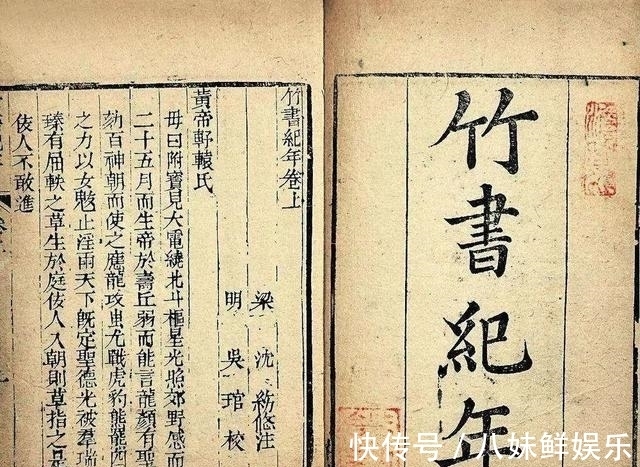 竹書紀年
竹書紀年卷上
梁 沈約附注
明 吳琯校
黃帝軒轅氏
母曰附寶見大電繞北斗樞星光照郊野感而
二十五月而生帝於壽丘弱而能言龍顏有聖
劾百神朝而使之應龍攻蚩尤戰虎豹熊羆
之力以女魃止淫雨天下旣定聖德光被羣瑞
臻有屈軼之草生於庭佞人入朝則草指之是
佞人不敢進
快传号 / 八妹鲜娱乐